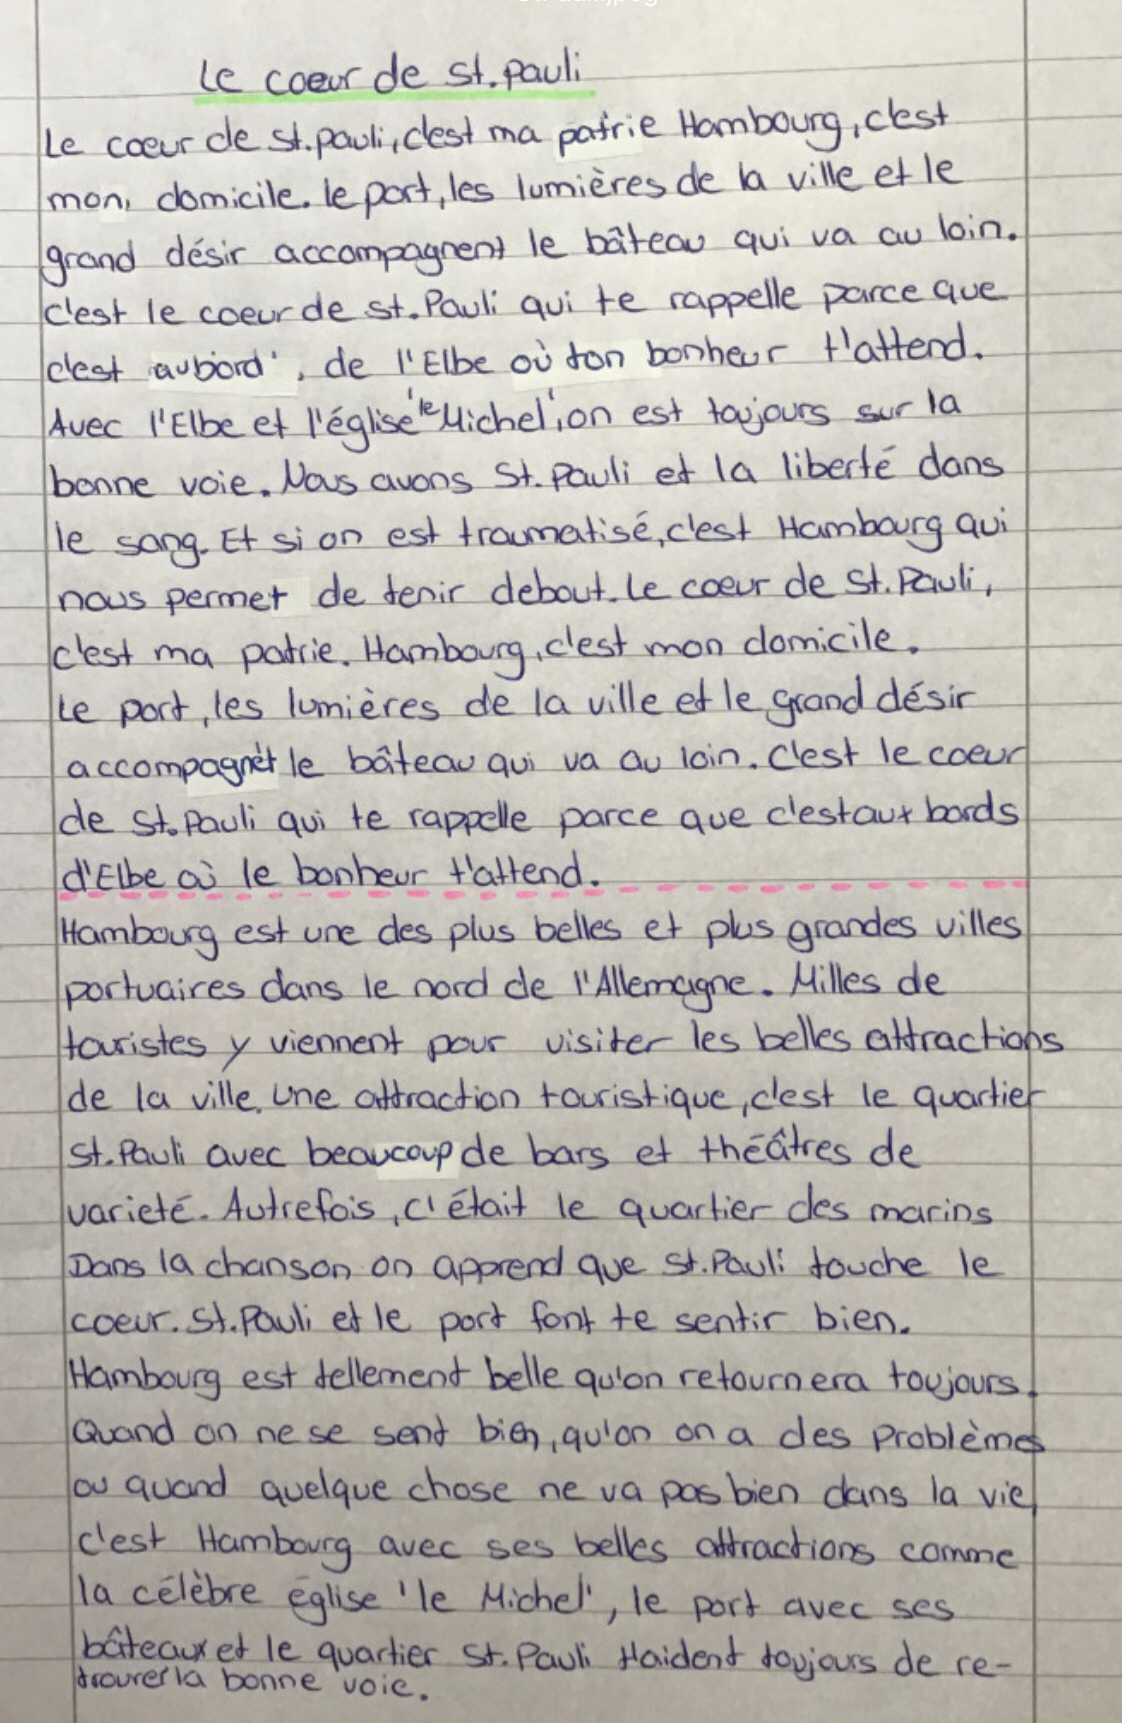 Le coeur de St. Pauli
Le coeur de St. Pauli, c'est ma patrie Hambourg, c'est
mon, domicile. le port, les lumières de la ville et le
grand désir accompagnent le bâteau qui va au loin.
c'est le coeur de St. Pauli qui te rappelle parce que
c'est au bord', de l'Elbe où ton bonheur t'attend.
Avec l'Elbe et l'église 'le Michel', on est toujours sur la
bonne voie. Nous avons St. Pauli et la liberté dans
le sang. Et si on est traumatisé, c'est Hambourg qui
nous permet de tenir debout. Le coeur de St. Pauli,
c'est ma patrie. Hambourg, c'est mon domicile.
Le port, les lumières de la ville et le grand désir
accompagnèt le bâteau qui va au loin. C'est le coeur
de St. Pauli qui te rappelle parce que c'est aux bords
d'Elbe où le bonheur t'attend.
Hambourg est une des plus belles et plus grandes villes
portuaires dans le nord de l'Allemagne. Milles de
touristes y viennent pour visiter les belles attractions
de la ville. Une attraction touristique, c'est le quartier
St. Pauli avec beaucoup de bars et théâtres de
varieté. Autrefois, c'était le quartier des marins
Dans la chanson on apprend que St. Pauli touche le
coeur. St. Pauli et le port font te sentir bien.
Hambourg est tellement belle qu'on retournera toujours.
Quand on ne se sent bien, qu'on on a des problèmes
ou quand quelque chose ne va pas bien dans la vie
c'est Hambourg avec ses belles attractions comme
la célèbre église 'le Michel', le port avec ses
bâteaux et le quartier St. Pauli t'aident toujours de re-
trouver la bonne voie.